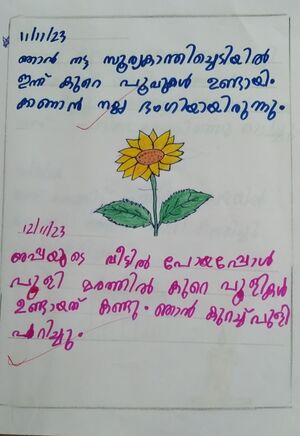 11/11/23
ഞാൻ നട്ട സൂര്യകാന്തിച്ചെടിയിൽ
ഇന്ന് കുറെ പൂവുകൾ ഉണ്ടായി.
കാണാൻ നല്ല ഭംഗിയായിരുന്നു.
12/11/23
അപ്പയുടെ വീട്ടിൽ പോയപ്പോൾ
പുളി മരത്തിൽ കുറെ പുളികൾ
ഉണ്ടായത് കണ്ടു. ഞാൻ കുറച്ച് പുളി
പറിച്ചു.